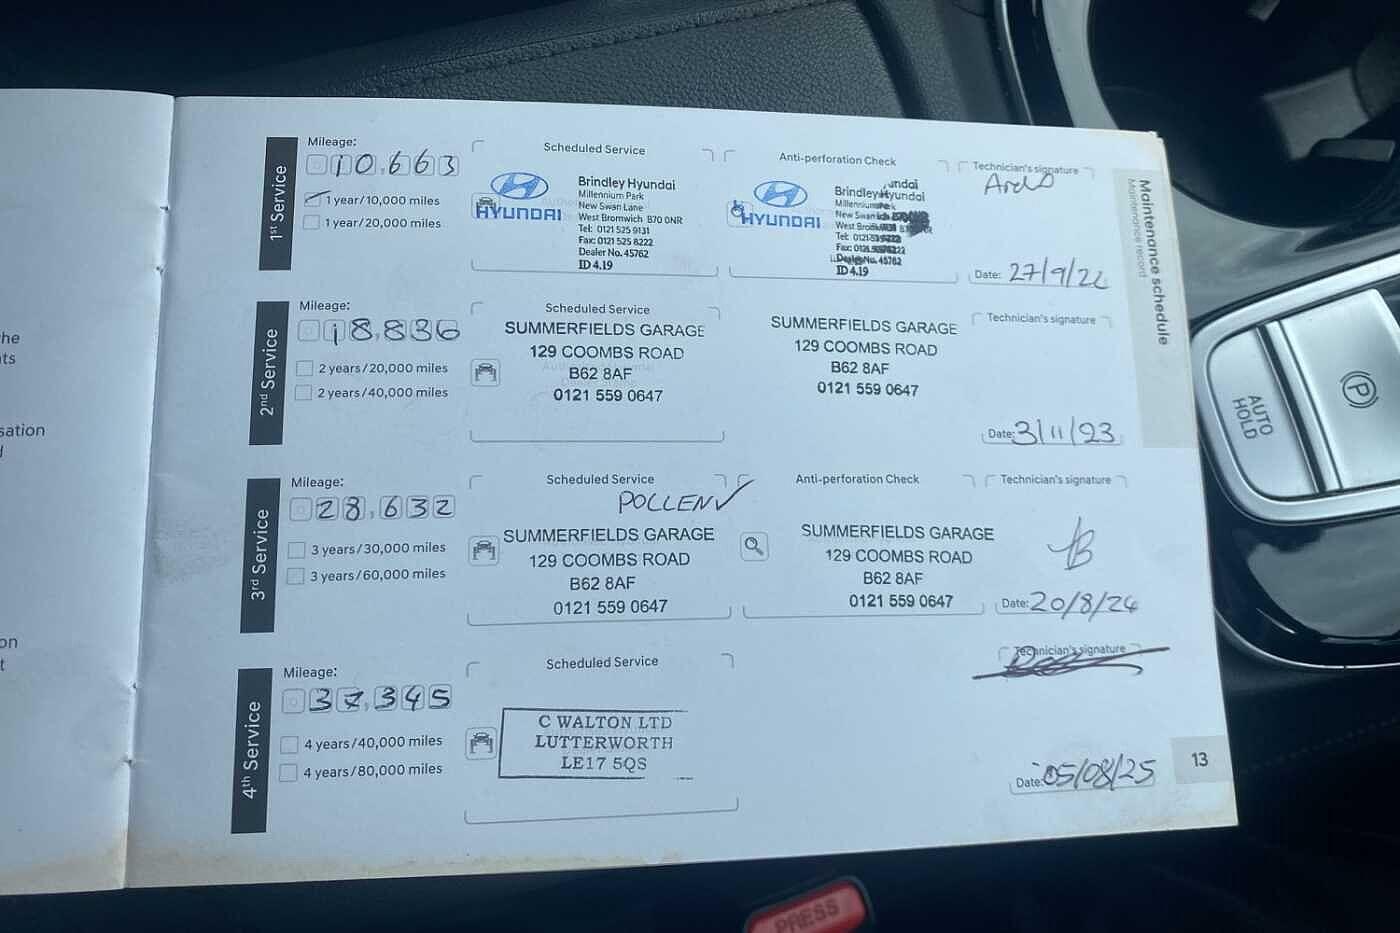 he
ts
sation
on
t
1st Service
Mileage:
10,663
1 year/10,000 miles
1 year/20,000 miles
Scheduled Service
HYUNDAI
Brindley Hyundai
Millennium Park
New Swan Lane
West Bromwich B70 0NR
Tel: 0121 525 9131
Fax: 0121 525 8222
Dealer No. 45762
ID 4.19
Anti-perforation Check
HYUNDAI
Brindley Hyundai
Dealer No. 45762
ID 4.19
Technician's signature
Date: 27/9/22
2nd Service
Mileage:
18,836
2 years/20,000 miles
2 years/40,000 miles
Scheduled Service
SUMMERFIELDS GARAGE
129 COOMBS ROAD
B62 8AF
0121 559 0647
SUMMERFIELDS GARAGE
129 COOMBS ROAD
B62 8AF
0121 559 0647
Technician's signature
Date: 3/11/23
3rd Service
Mileage:
28,632
3 years/30,000 miles
3 years/60,000 miles
Scheduled Service
POLLEN ✓
SUMMERFIELDS GARAGE
129 COOMBS ROAD
B62 8AF
0121 559 0647
Anti-perforation Check
SUMMERFIELDS GARAGE
129 COOMBS ROAD
B62 8AF
0121 559 0647
Technician's signature
Date: 20/8/24
4th Service
Mileage:
37,345
4 years/40,000 miles
4 years/80,000 miles
Scheduled Service
C WALTON LTD
LUTTERWORTH
LE17 5QS
Technician's signature
Date: 05/08/25
Maintenance schedule
Maintenance record
13
AUTO
HOLD
P
PRESS